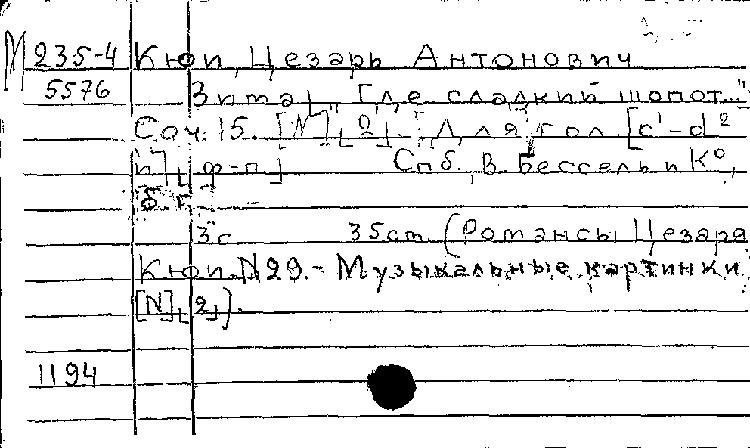 М 235-4 Кюи, Цезарь Антонович
5576 Зима ,,Где сладкий шопот..."
Соч. 15. [N] [2]. Для гол. [c'-d²
и] [ф-п] Спб., В. Бессель и К°,
б.г.
3 с 35 cm (Романсы Цезаря
Кюи. N29.- Музыкальные картинки
[N] [2]).
1194